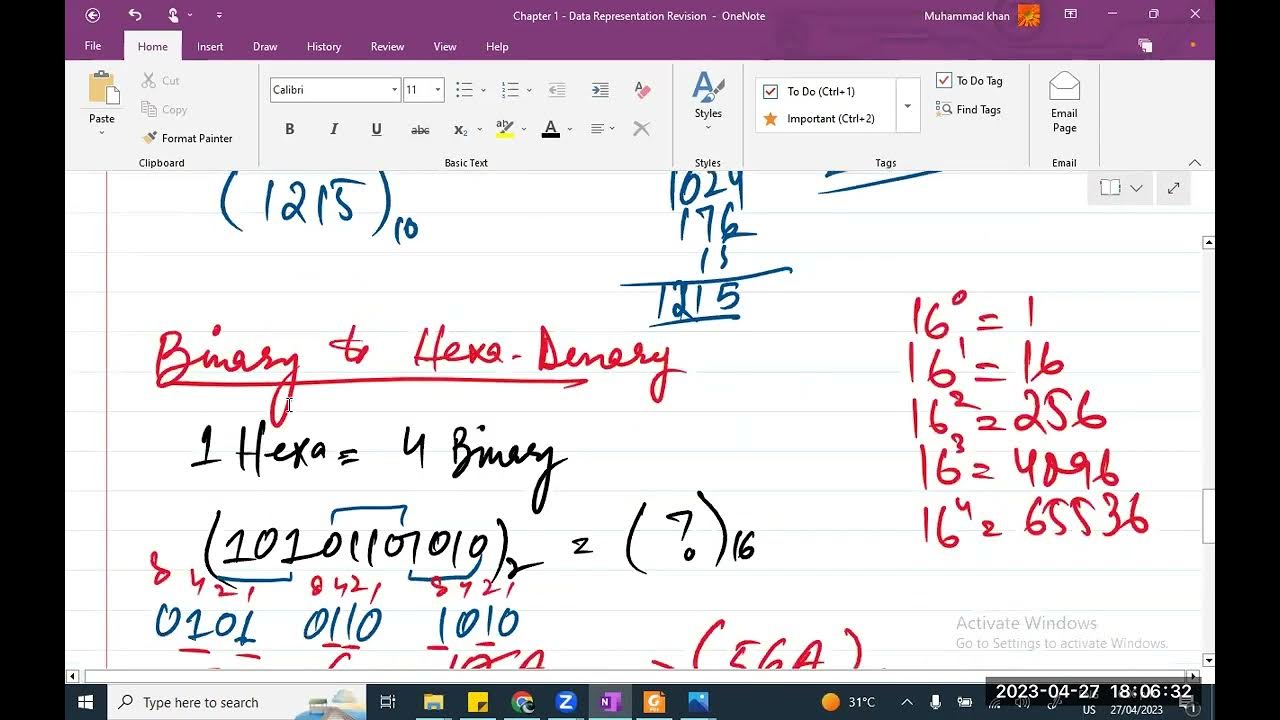 Chapter 1 - Data Representation Revision - OneNote
Muhammad khan
File Home Insert Draw History Review View Help
Paste
Cut
Copy
Format Painter
Clipboard
Calibri 11
B I U abc x₂ A
Basic Text
Styles
Styles
To Do (Ctrl+1)
Important (Ctrl+2)
To Do Tag
Find Tags
Tags
Email Page
Email
(1215)₁₀
1024
176
15
1215
16⁰ = 1
16¹ = 16
16² = 256
16³ = 4096
16⁴ = 65536
Binary to Hexa-Denary
1 Hexa = 4 Binary
(10101101010)₂ = (?)₁₆
8 4 2 1 8 4 2 1 8 4 2 1
0101 0110 1010
(56A)
Activate Windows
Go to Settings to activate Windows.
Type here to search
31°C
US
27/04/2023
2023-04-27 18:06:32